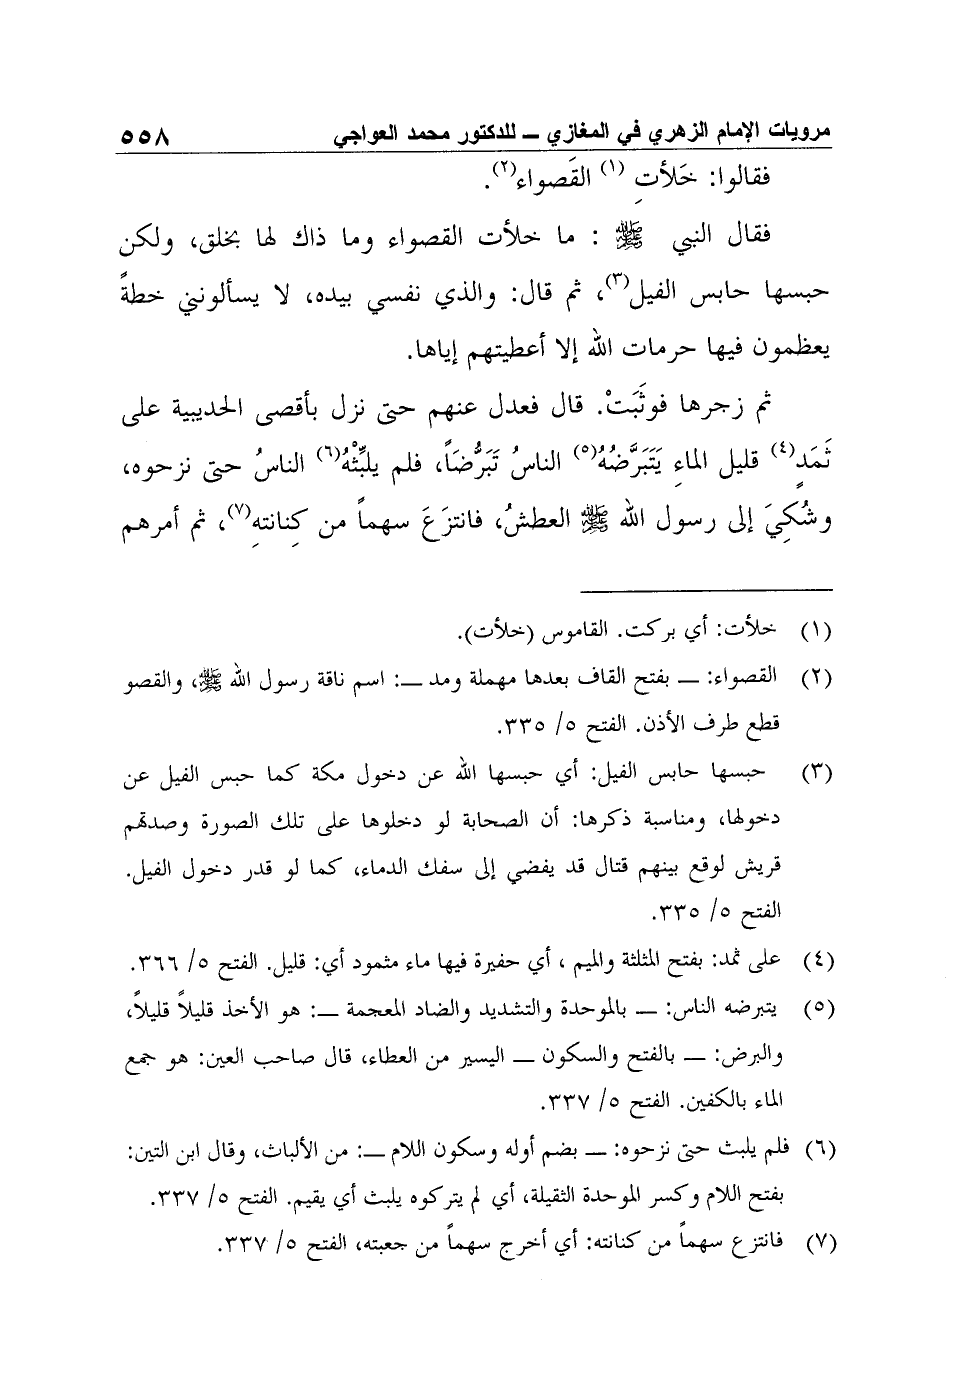 مرويات الإمام الزهري في المغازي ـــ للدكتور محمد العواجي ٥٥٨
فقالوا: خَلأتِ (١) القَصواء(٢).
فقال النبي ﷺ : ما خلأت القصواء وما ذاك لها بخلق، ولكن
حبسها حابس الفيل(٣)، ثم قال: والذي نفسي بيده، لا يسألونني خطةً
يعظمون فيها حرمات الله إلا أعطيتهم إياها.
ثم زجرها فوثَبَتْ. قال فعدل عنهم حتى نزل بأقصى الحديبية على
ثَمَدٍ(٤) قليل الماءِ يَتَبَرَّضُهُ(٥) الناسُ تَبَرُّضَاً، فلم يلبِّثْهُ(٦) الناسُ حتى نزحوه،
وشُكِيَ إلى رسول الله ﷺ العطشُ، فانتزَعَ سهماً من كِنانتهِ(٧)، ثم أمرهم
(١) خلأت: أي بركت. القاموس (خلأت).
(٢) القصواء: ـــ بفتح القاف بعدها مهملة ومد ـــ: اسم ناقة رسول الله ﷺ، والقصو
قطع طرف الأذن. الفتح ٥/ ٣٣٥.
(٣) حبسها حابس الفيل: أي حبسها الله عن دخول مكة كما حبس الفيل عن
دخولها، ومناسبة ذكرها: أن الصحابة لو دخلوها على تلك الصورة وصدتهم
قريش لوقع بينهم قتال قد يفضي إلى سفك الدماء، كما لو قدر دخول الفيل.
الفتح ٥/ ٣٣٥.
(٤) على ثمد: بفتح المثلثة والميم ، أي حفيرة فيها ماء مثمود أي: قليل. الفتح ٥/ ٣٦٦.
(٥) يتبرضه الناس: ـــ بالموحدة والتشديد والضاد المعجمة ـــ: هو الأخذ قليلاً قليلاً،
والبرض: ـــ بالفتح والسكون ـــ اليسير من العطاء، قال صاحب العين: هو جمع
الماء بالكفين. الفتح ٥/ ٣٣٧.
(٦) فلم يلبث حتى نزحوه: ـــ بضم أوله وسكون اللام ـــ: من الألباث، وقال ابن التين:
بفتح اللام وكسر الموحدة الثقيلة، أي لم يتركوه يلبث أي يقيم. الفتح ٥/ ٣٣٧.
(٧) فانتزع سهماً من كنانته: أي أخرج سهماً من جعبته، الفتح ٥/ ٣٣٧.